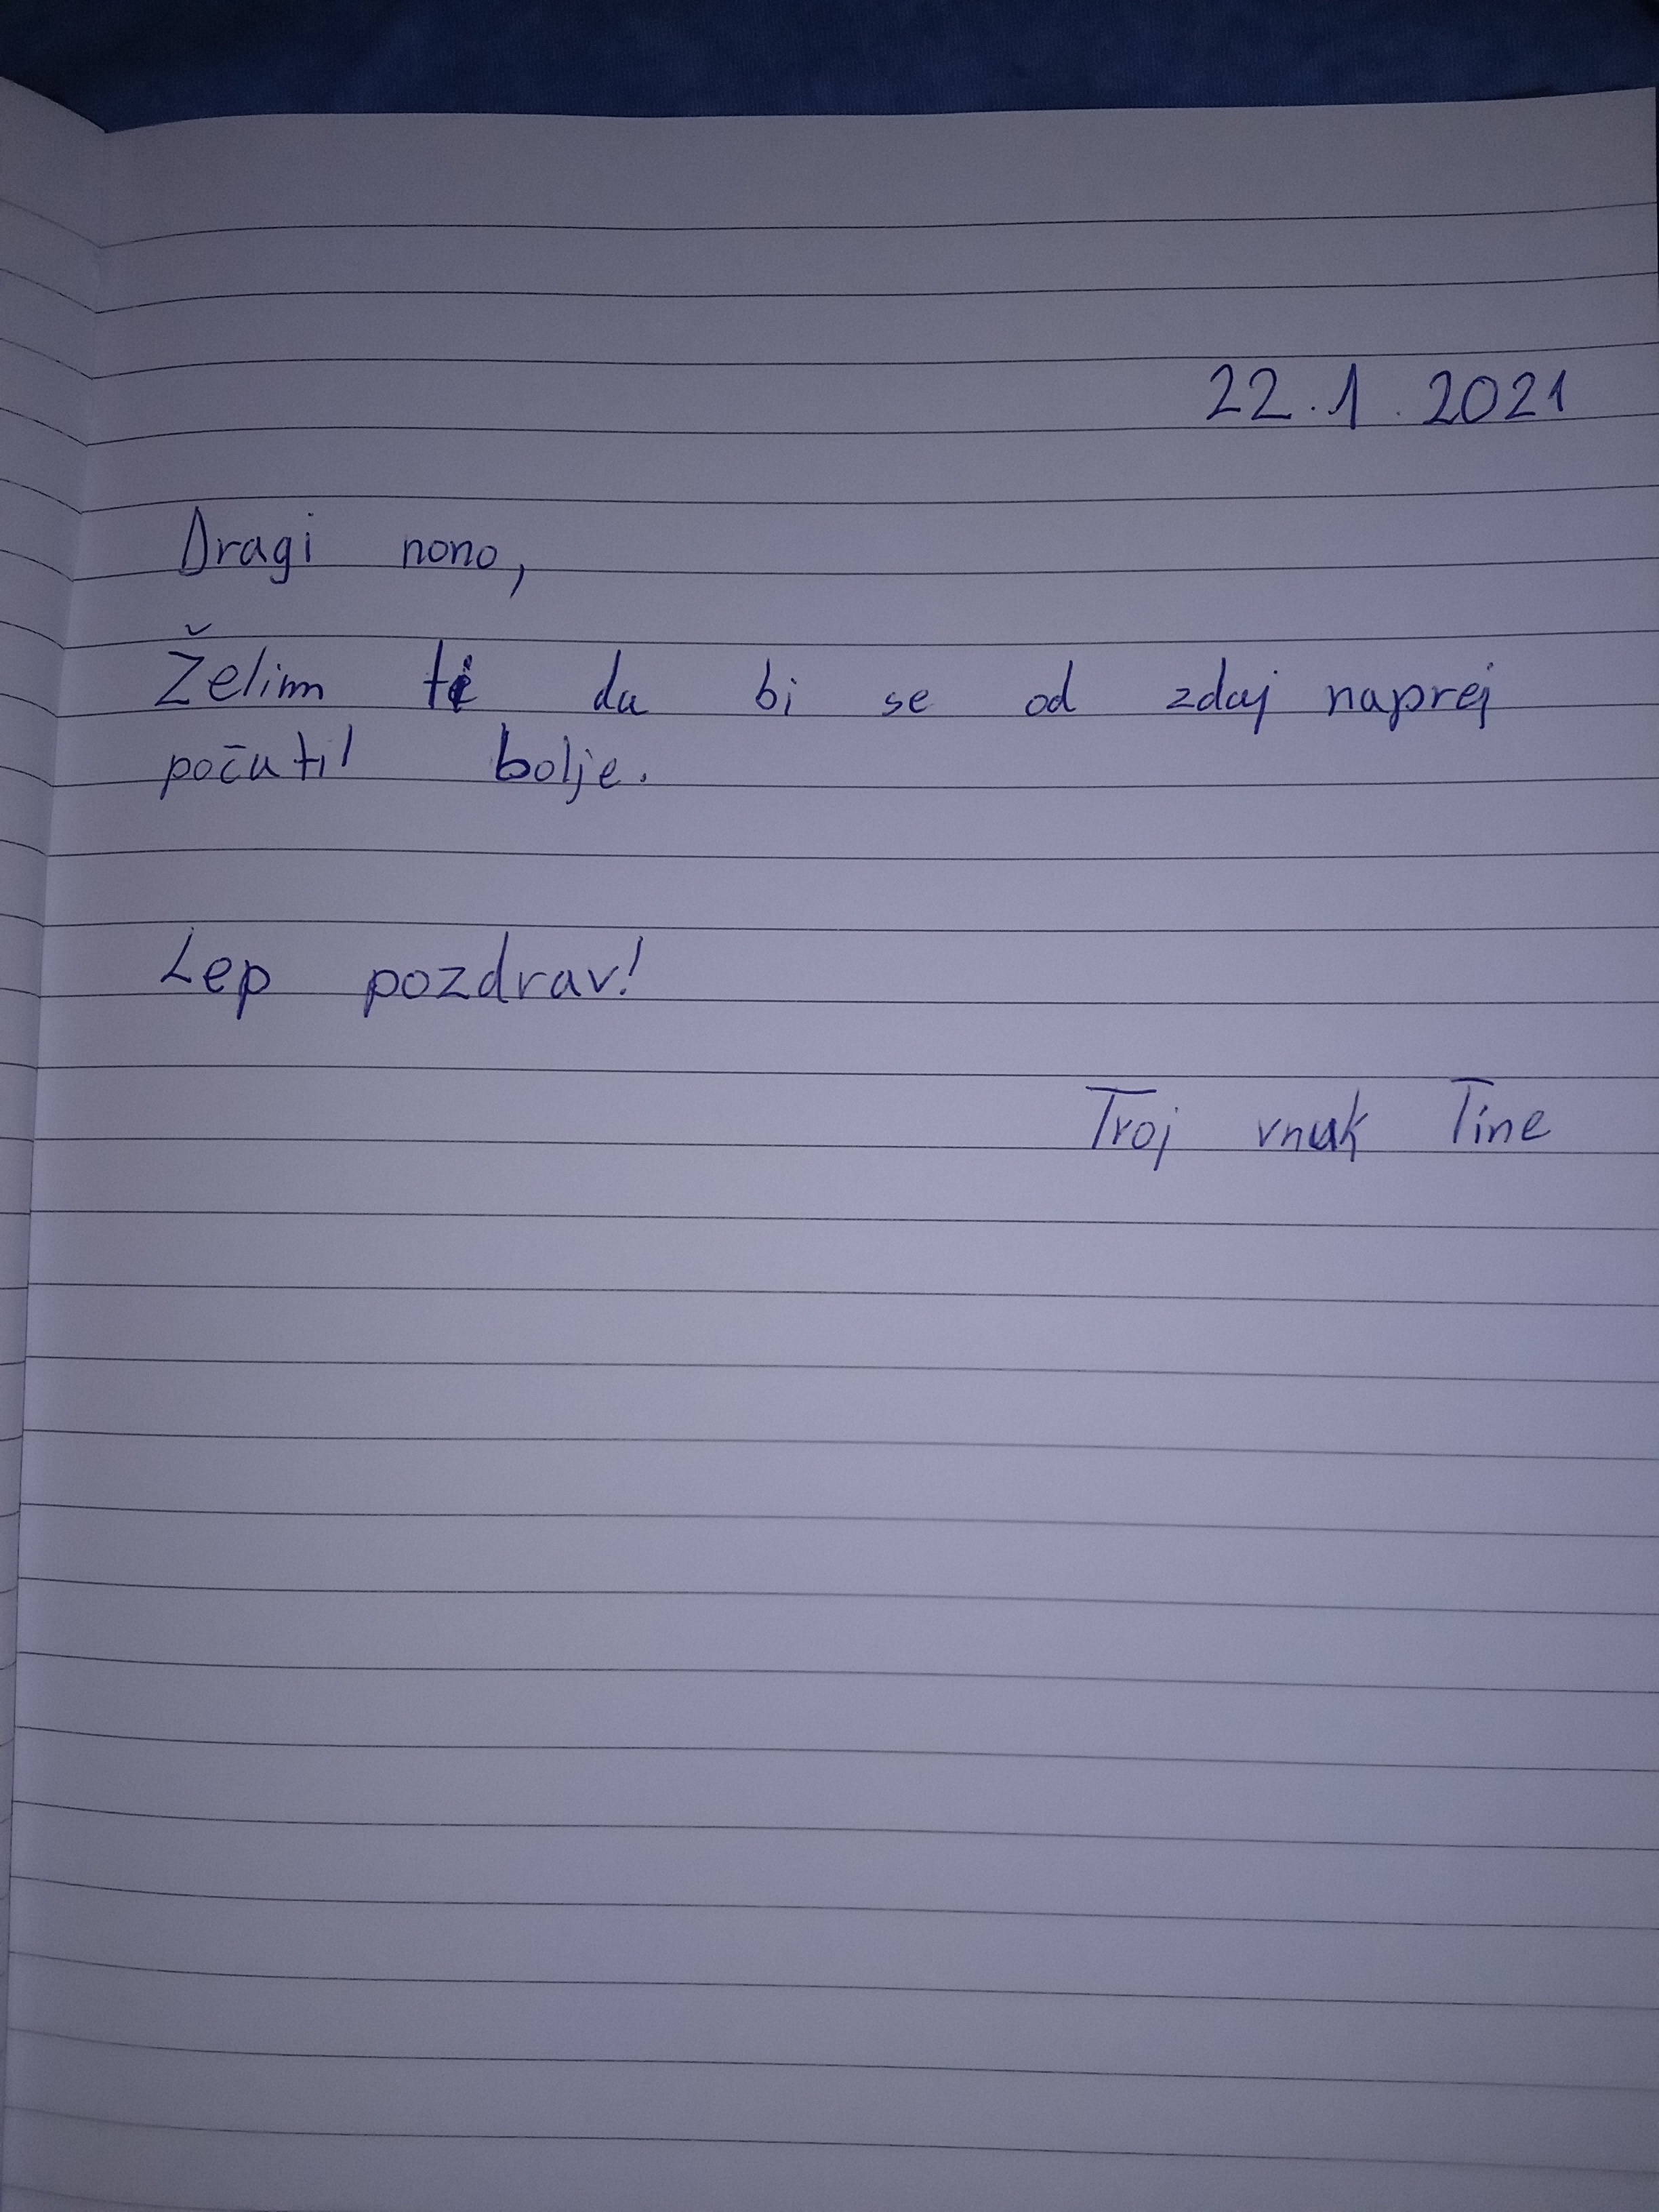 22.1.2021
Dragi nono,
Želim ti da bi se od zdaj naprej
počutil bolje.
Lep pozdrav!
Tvoj vnuk Tine